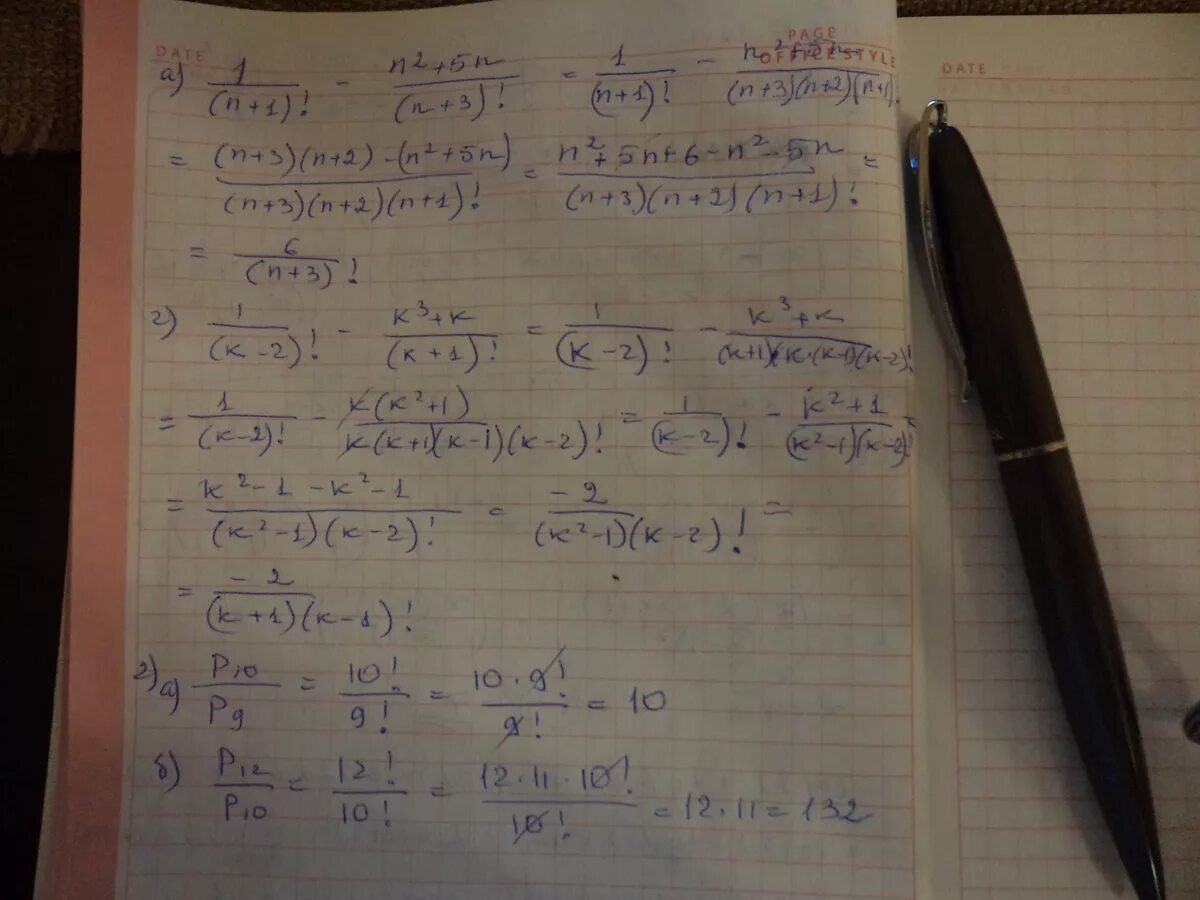 DATE
PAGE
OFFICE STYLE
DATE
а) 1/(n+1)! - (n²+5n)/(n+3)! = 1/(n+1)! - /(n+3)(n+2)(n+1)
= ((n+3)(n+2)-(n²+5n))/((n+3)(n+2)(n+1)!) = (n²+5n+6-n²-5n)/((n+3)(n+2)(n+1)!) =
= 6/(n+3)!
г) 1/(k-2)! - (k³+k)/(k+1)! = 1/(k-2)! - (k³+k)/((k+1)(k·(k-1)(k-2)!
= 1/(k-2)! - k(k²+1)/(k(k+1)(k-1)(k-2)!) = 1/(k-2)! - (k²+1)/((k²-1)(k-2)!)
= (k²-1-k²-1)/((k²-1)(k-2)!) = -2/((k²-1)(k-2)!) =
= -2/((k+1)(k-1)!)
2) а) P₁₀/P₉ = 10!/9! = 10·9!/9! = 10
б) P₁₂/P₁₀ = 12!/10! = 12·11·10!/10! = 12·11 = 132